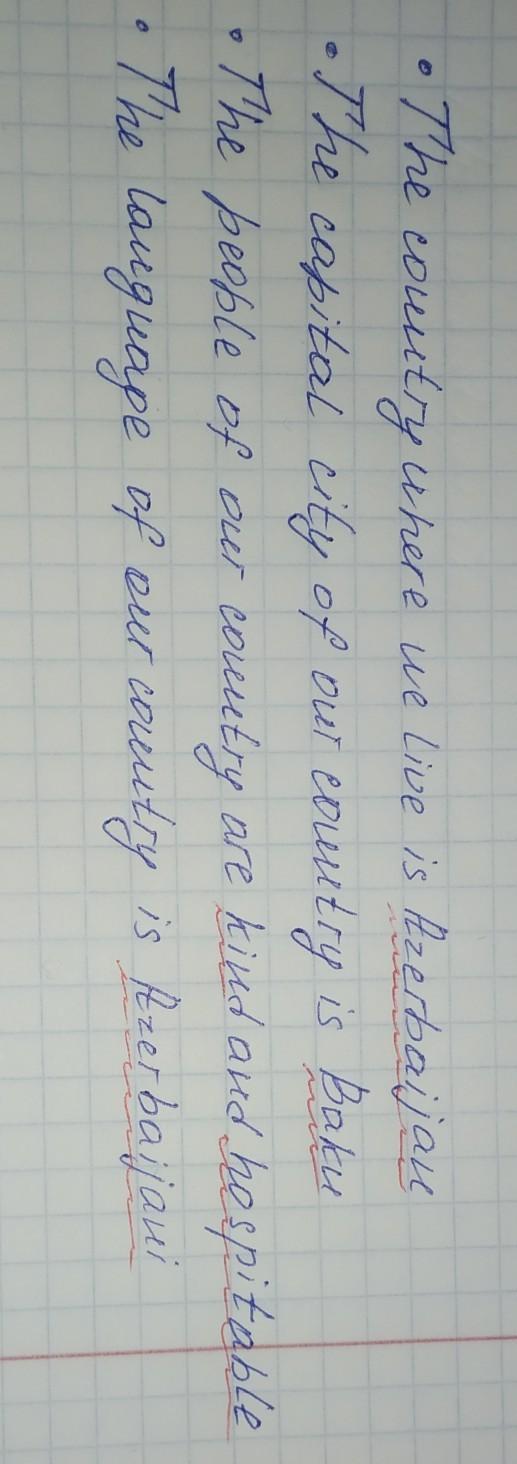 • The country where we live is Azerbaijan
• The capital city of our country is Baku
• The people of our country are kind and hospitable
• The language of our country is Azerbaijani